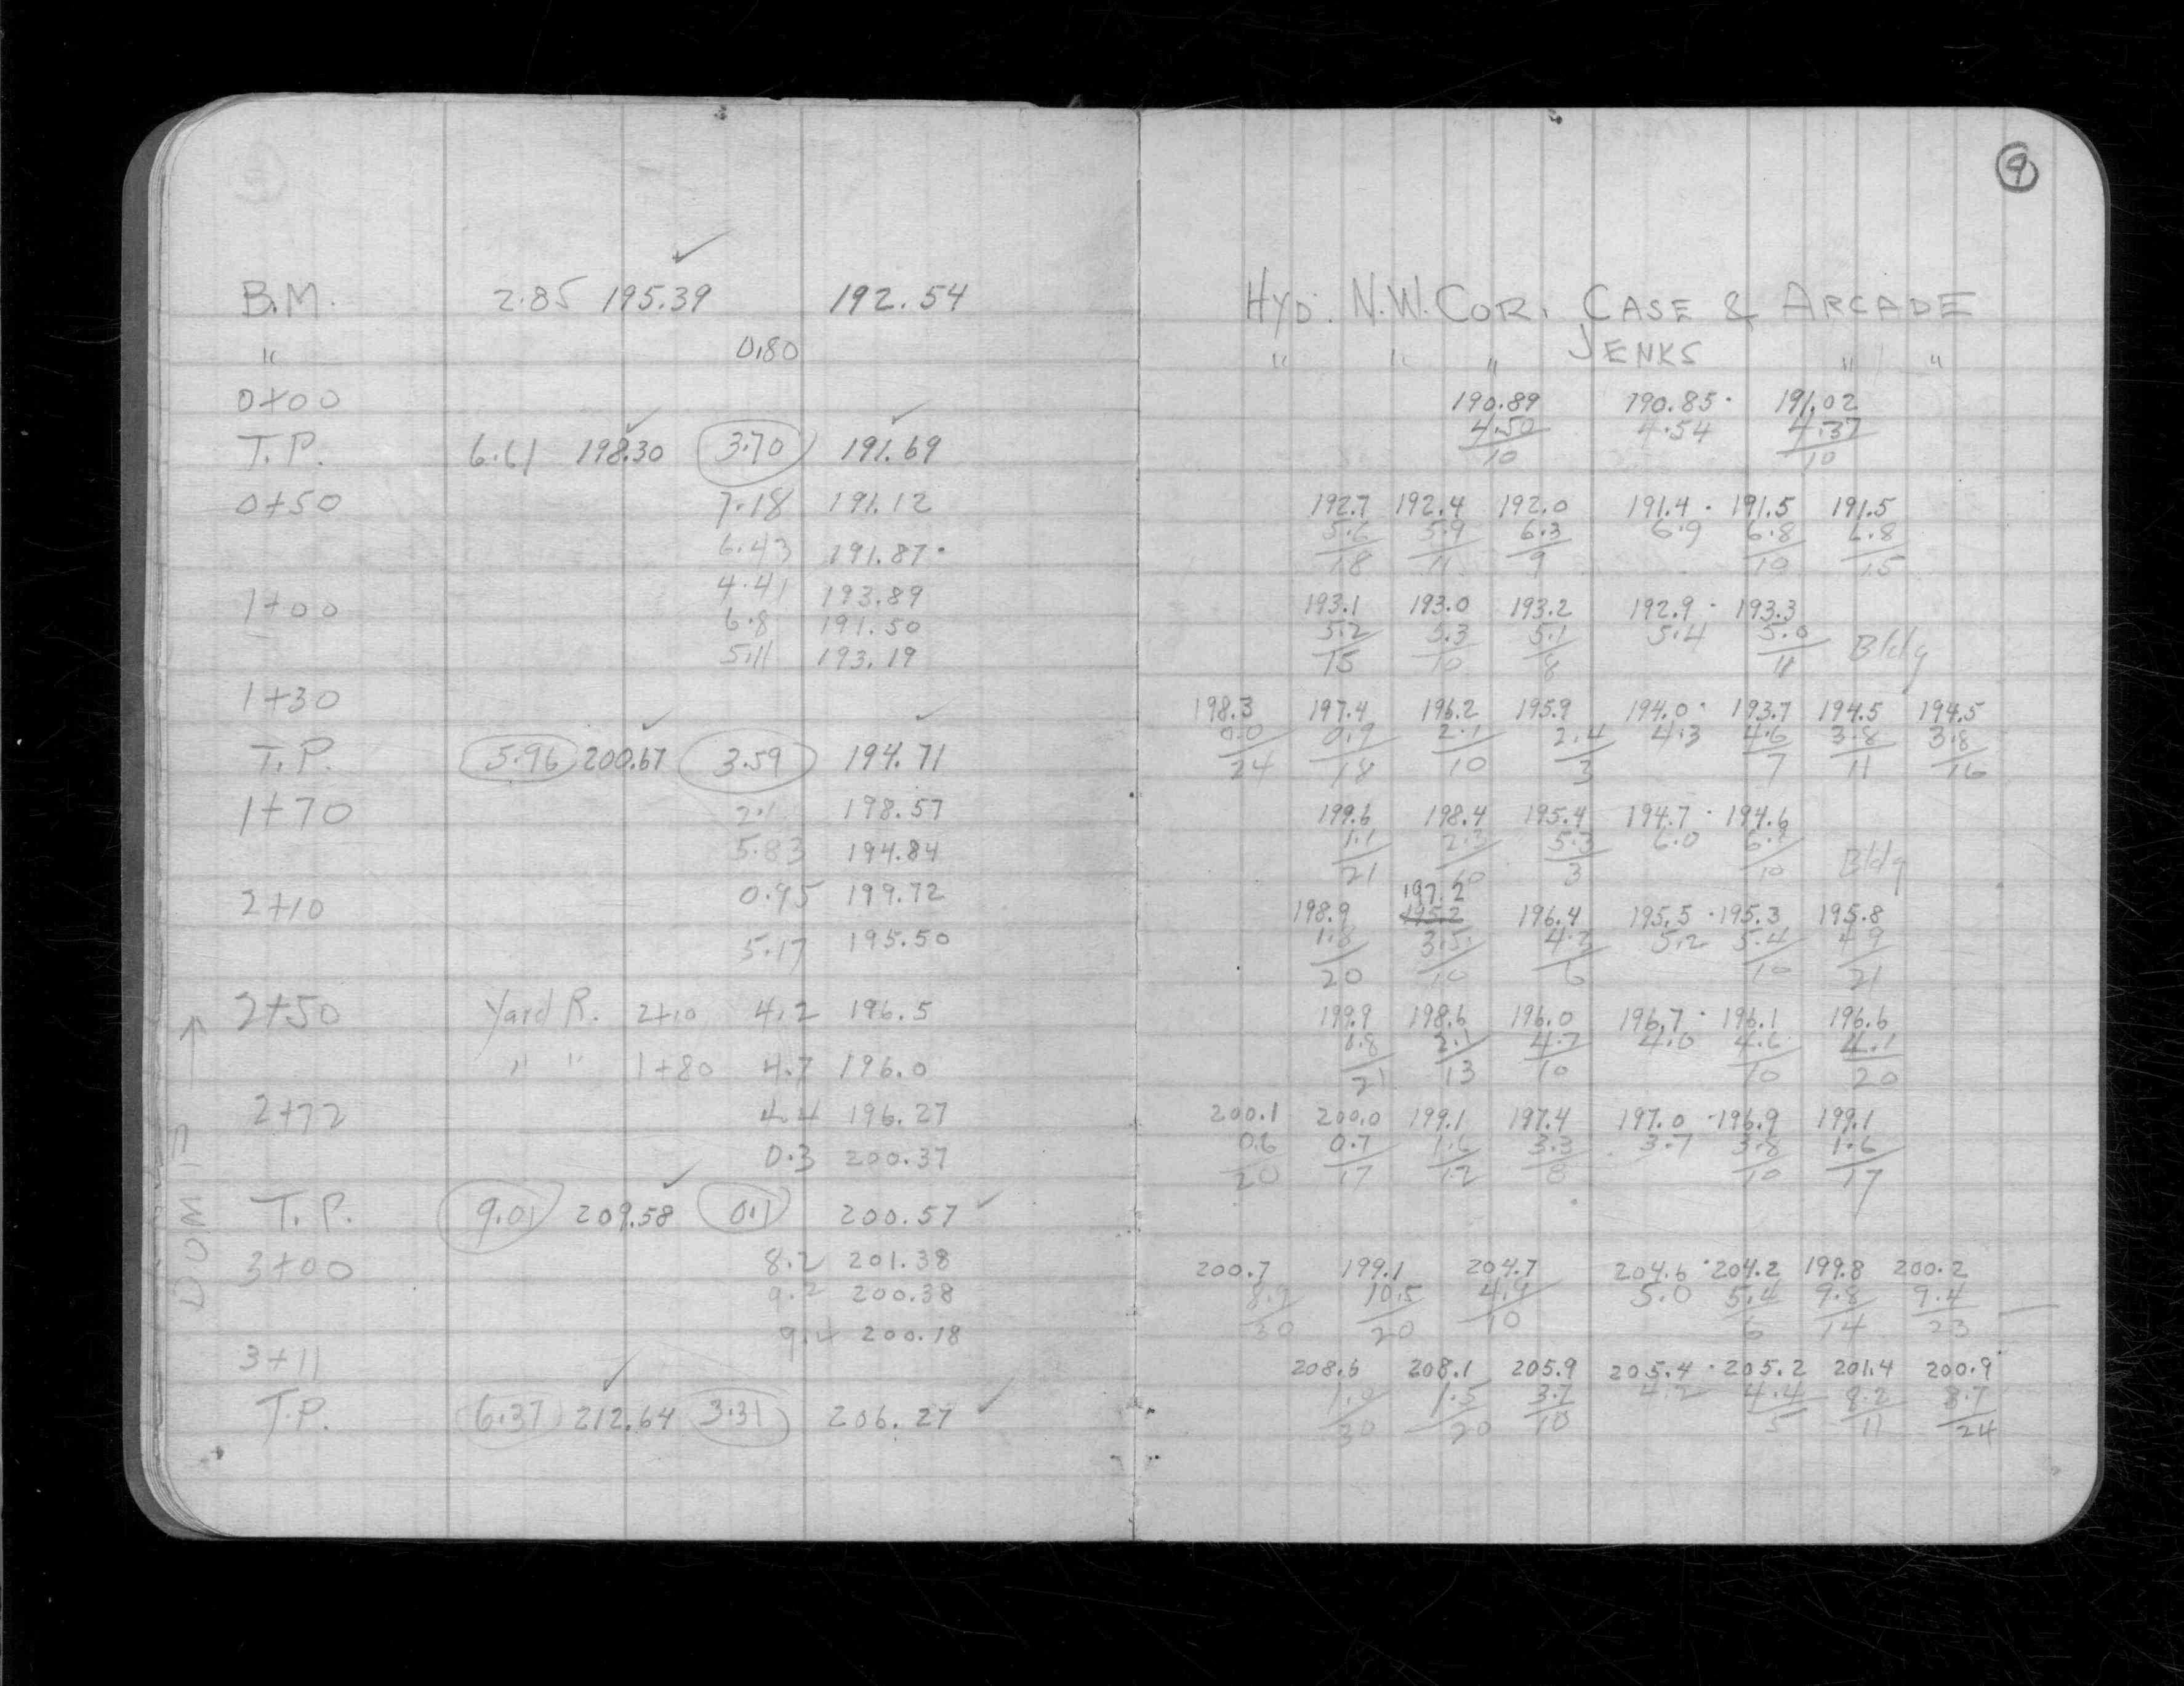 9
B.M. 2.85 195.39 192.54 HYD. N.W. COR. CASE & ARCADE
" 0.80 " " " JENKS " "
0+00 190.89 190.85· 191.02
4.50 4.54 4.37
10 10
T.P. 6.61 198.30 3.70 191.69
0+50 7.18 191.12 192.7 192.4 192.0 191.4 · 191.5 191.5
6.43 191.87· 5.6 5.9 6.3 6.9 6.8 6.8
18 11 9 10 15
4.41 193.89
1+00 6.8 191.50 193.1 193.0 193.2 192.9 · 193.3
5.11 193.19 5.2 5.3 5.1 5.4 5.0 Bldg
15 10 8 11
1+30 198.3 197.4 196.2 195.9 194.0 · 193.7 194.5 194.5
0.0 0.9 2.1 2.4 4.3 4.6 3.8 3.8
24 18 10 3 7 11 16
T.P. 5.96 200.67 3.59 194.71
1+70 2.1 198.57 199.6 198.4 195.4 194.7 · 194.6
5.83 194.84 1.1 2.3 5.3 6.0 6.1 Bldg
21 10 3 10
0.95 199.72 197.2
2+10 198.9 195.2 196.4 195.5 · 195.3 195.8
5.17 195.50 1.8 3.5 4.3 5.2 5.4 4.9
20 10 6 10 21
2+50 Yard R. 2+10 4.2 196.5 199.9 198.6 196.0 196.7 · 196.1 196.6
" " 1+80 4.7 196.0 0.8 2.1 4.7 4.0 4.6 4.1
21 13 10 10 20
2+72 4.4 196.27 200.1 200.0 199.1 197.4 197.0 · 196.9 199.1
0.3 200.37 0.6 0.7 1.6 3.3 3.7 3.8 1.6
20 17 12 8 10 17
T.P. 9.01 209.58 0.1 200.57
3+00 8.2 201.38 200.7 199.1 204.7 204.6 · 204.2 199.8 200.2
9.2 200.38 8.9 10.5 4.9 5.0 5.4 9.8 9.4
9.4 200.18 30 20 10 6 14 23
3+11 208.6 208.1 205.9 205.4 · 205.2 201.4 200.9
1.0 1.5 3.7 4.2 4.4 8.2 8.7
30 20 10 5 11 24
T.P. 6.37 212.64 3.31 206.27